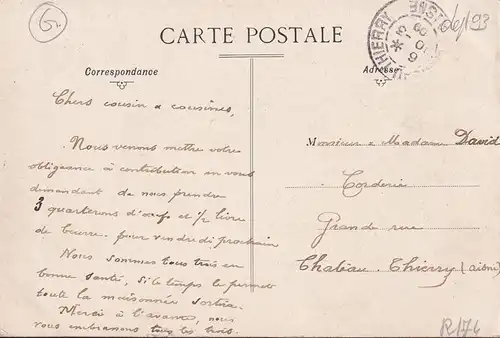 G.
CARTE POSTALE
THIERRY
AISNE
dep 93
Correspondance
Adresse
Chers cousin & cousines,
Nous venons mettre votre
obligeance à contribution en vous
demandant de nous prendre
3 quarterons d'œufs et 1/2 livre
de beurre pour vendredi prochain
Nous sommes tous trois en
bonne santé, si le temps le permet
toute la maisonnée sortira.
Merci à l'avance, nous
vous embrassons tous les trois.
Monsieur & Madame David
Corderie
Grande rue
Chateau-Thierry (aisne)
R174